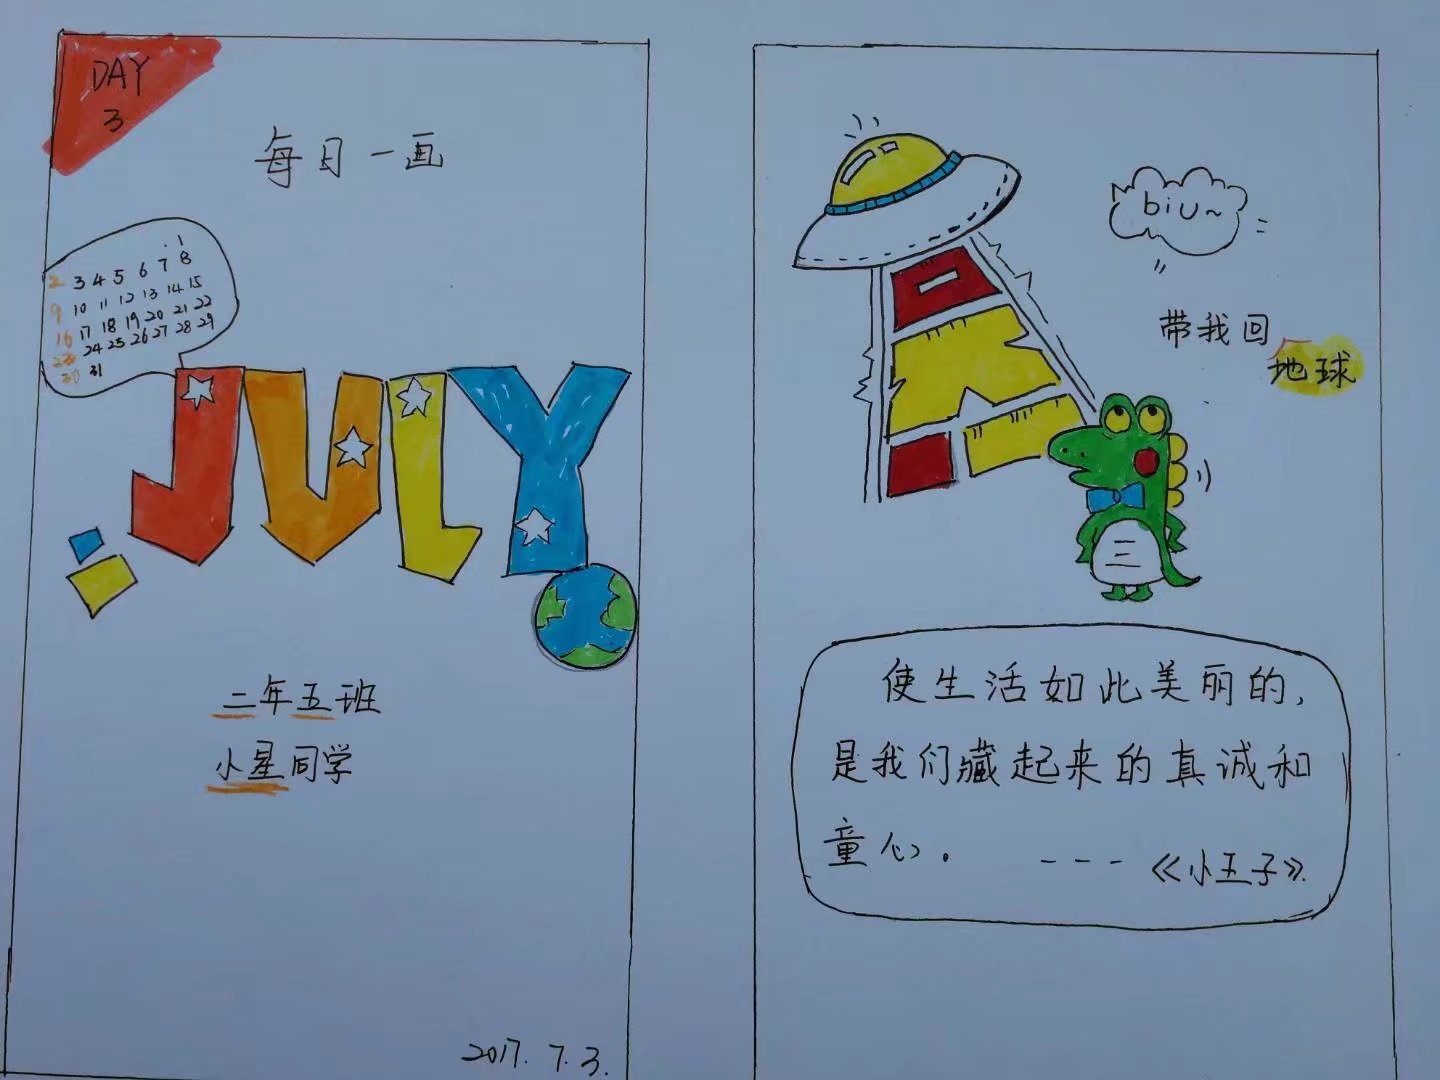 DAY
3
每日一画
1
2 3 4 5 6 7 8
9 10 11 12 13 14 15
16 17 18 19 20 21 22
23 24 25 26 27 28 29
30 31
JULY
二年五班
小星同学
2017.7.3.
biu~
带我回
地球
三
使生活如此美丽的,
是我们藏起来的真诚和
童心.
---《小王子》.